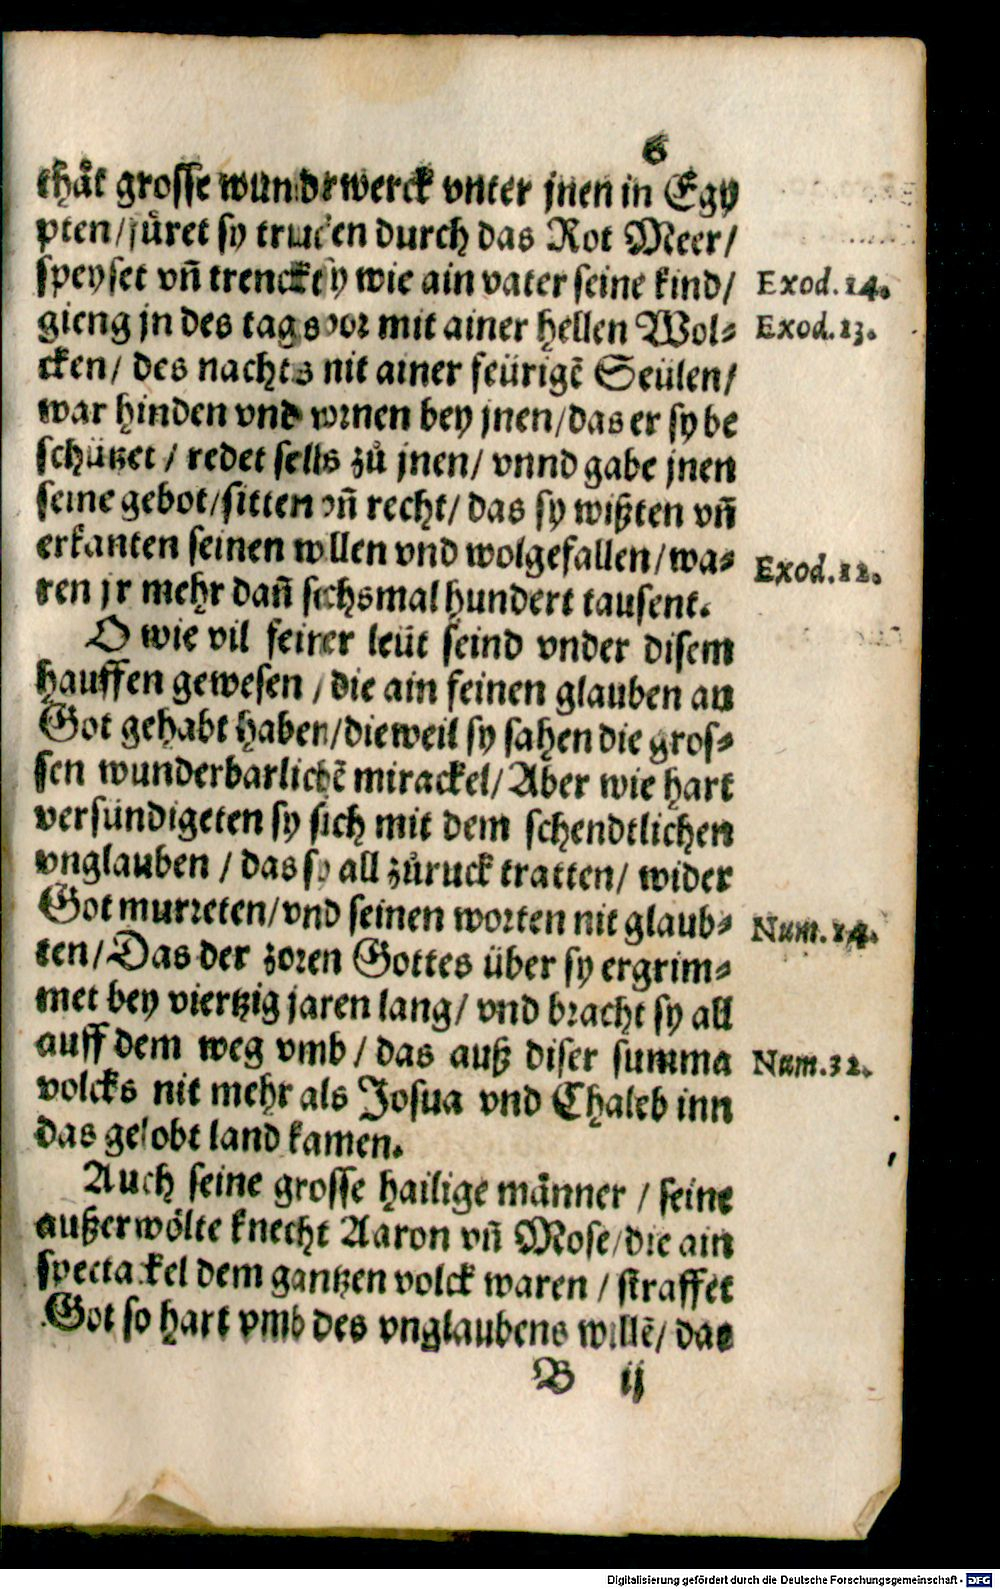 6
thåt grosse wunderwerck vnter jnen in Egy
pten/fůret sy trucken durch das Rot Meer/
speyset vñ trenckt sy wie ain vater seine kind/
Exod. 14.
gieng jn des tags vor mit ainer hellen Wol⸗
Exod. 13.
cken/ des nachts mit ainer feürigẽ Seülen/
war hinden vnd vornen bey jnen/das er sy be
schützet / redet selbs zů jnen/ vnnd gabe jnen
seine gebot/sitten vñ recht/ das sy wißten vñ
erkanten seinen willen vnd wolgefallen/wa⸗
Exod. 12.
ren jr mehr dañ sechsmal hundert tausent.
O wie vil feiner leüt seind vnder disem
hauffen gewesen / die ain feinen glauben an
Got gehabt haben/dieweil sy sahen die gros⸗
sen wunderbarlichẽ mirackel/Aber wie hart
versündigeten sy sich mit dem schendtlichen
vnglauben / das sy all zůruck tratten/ wider
Got murreten/vnd seinen worten nit glaub⸗
Num. 14.
ten/Das der zoren Gottes über sy ergrim⸗
met bey viertzig jaren lang/ vnd bracht sy all
auff dem weg vmb / das auß diser summa
Num. 32.
volcks nit mehr als Josua vnd Chaleb inn
das gelobt land kamen.
Auch seine grosse hailige månner / seine
außerwölte knecht Aaron vñ Mose/die ain
spectackel dem gantzen volck waren / straffet
Got so hart vmb des vnglaubens willẽ/ das
B ij
Digitalisierung gefördert durch die Deutsche Forschungsgemeinschaft - DFG